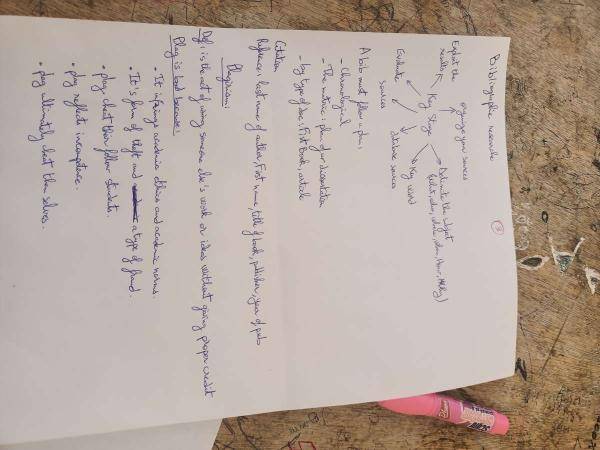 Bibliographic research
3
organize your sources
Exploit the
results
Delimite the subject
(what, who, where, when, How, Why)
Key Stage
Key word
Evaluate
sources
database sources
A bib must follow a plan:
- Chronological
- The matric: plan of ur dissertation
- by type of doc: First Book, article
Citation
Reference: last name of author, First name, title of book, publisher, year of pub
Plagirism:
Def: is the act of using someone else's work or ideas without giving proper credit
Plag is bad because:
• It infrings academic ethics and academic norms.
• It's form of theft and a type of fraud.
• plag. cheat their follow students.
• plag reflects incompetence.
• plag ultimately cheat them selves.